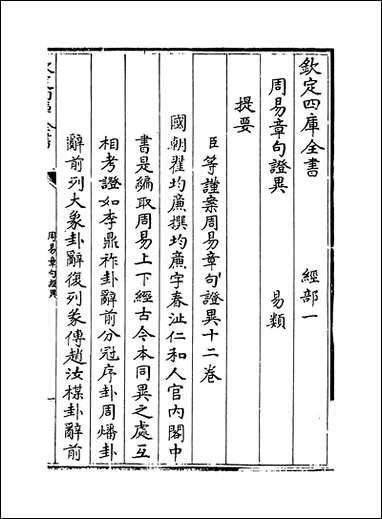 欽定四庫全書　經部一
周易章句證異　易類
提要
臣等謹案周易章句證異十二卷
國朝翟均廉撰均廉字春沚仁和人官内閣中
書是編取周易上下經古今本同異之處互
相考證如李鼎祚卦辭前分冠序卦周燔卦
辭前列大象卦辭復列彖傳趙汝楳卦辭前
周易章句證異